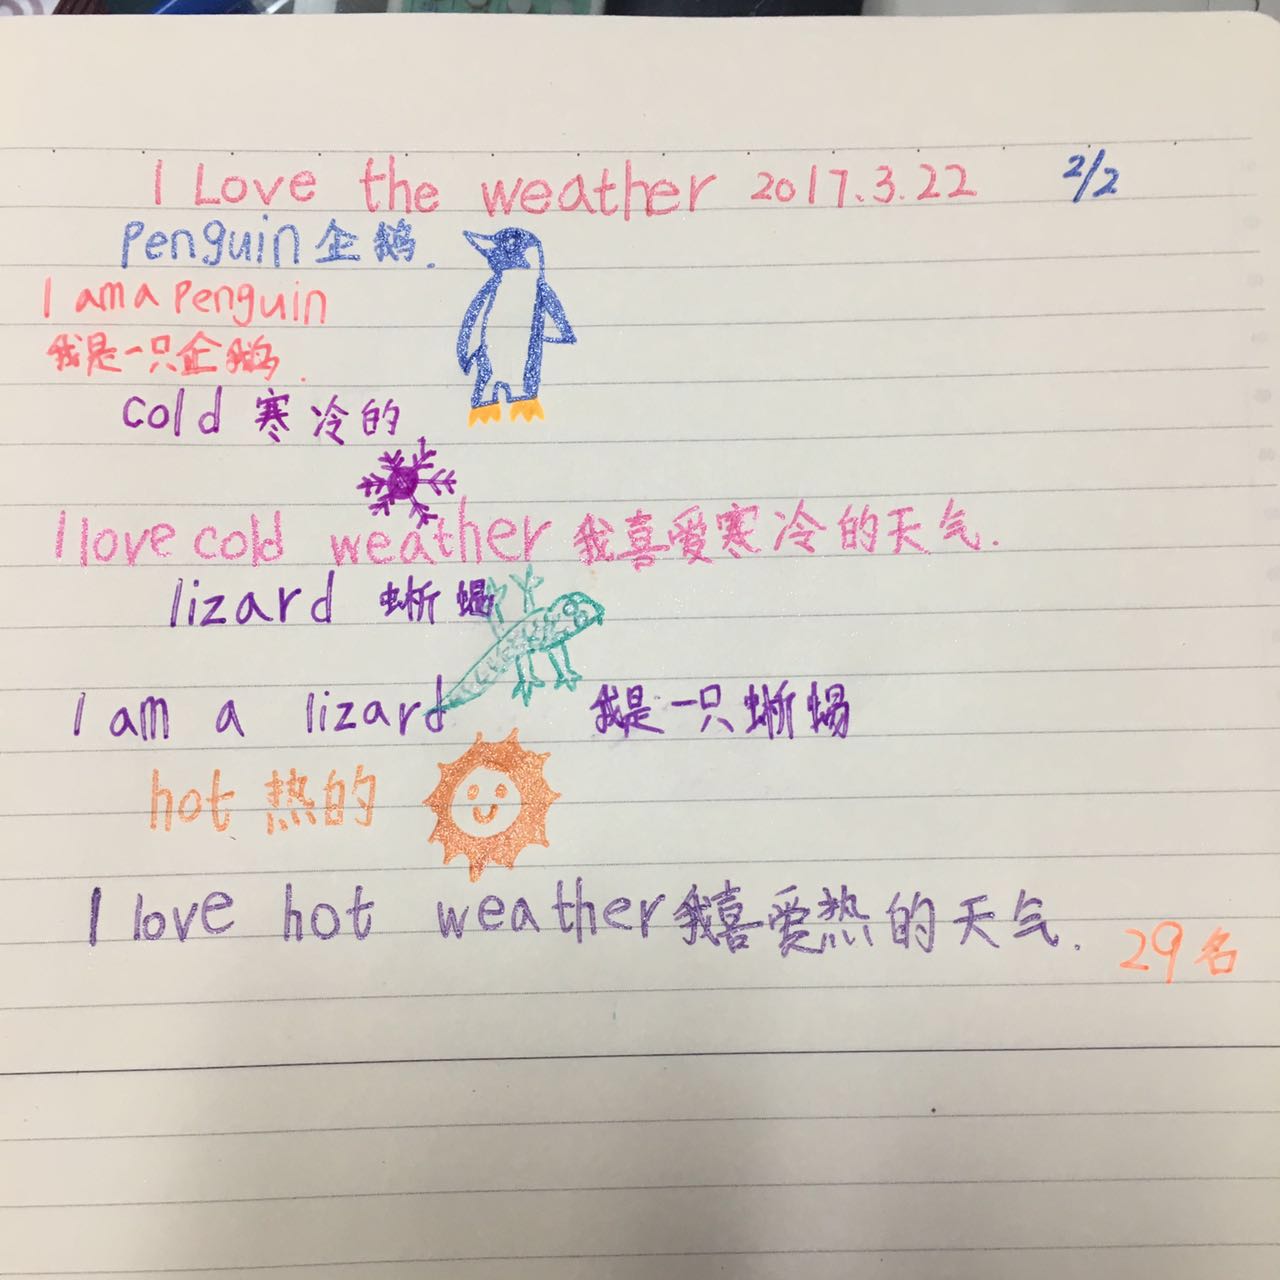 I Love the weather 2017.3.22 2/2
penguin 企鹅.
I am a penguin
我是一只企鹅.
cold 寒冷的
I love cold weather 我喜爱寒冷的天气.
lizard 蜥蜴
I am a lizard 我是一只蜥蜴
hot 热的
I love hot weather 我喜爱热的天气.
29名